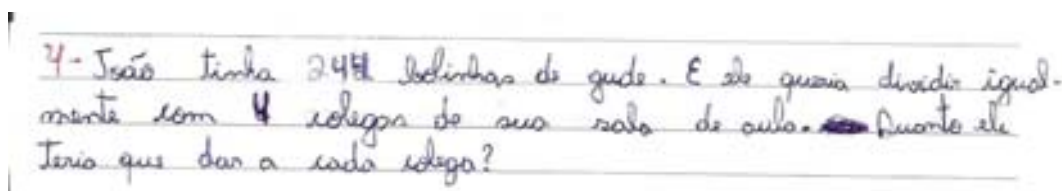 4- João tinha 244 bolinhas de gude. E ele queria dividir igual-
mente com 4 colegas de sua sala de aula. Quanto ele
teria que dar a cada colega?